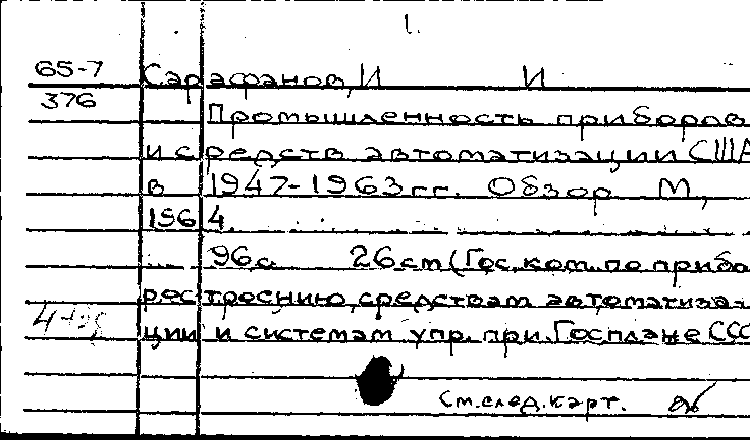 1.
65-7
Сарафанов, И И
376
Промышленность приборов
и средств автоматизации США
в 1947-1963 гг. Обзор М,
1964.
96 с. 26 см (Гос. ком. по прибо
ростроению, средствам автоматиза-
ции и системам упр. при Госплане ССС
См. след. карт.